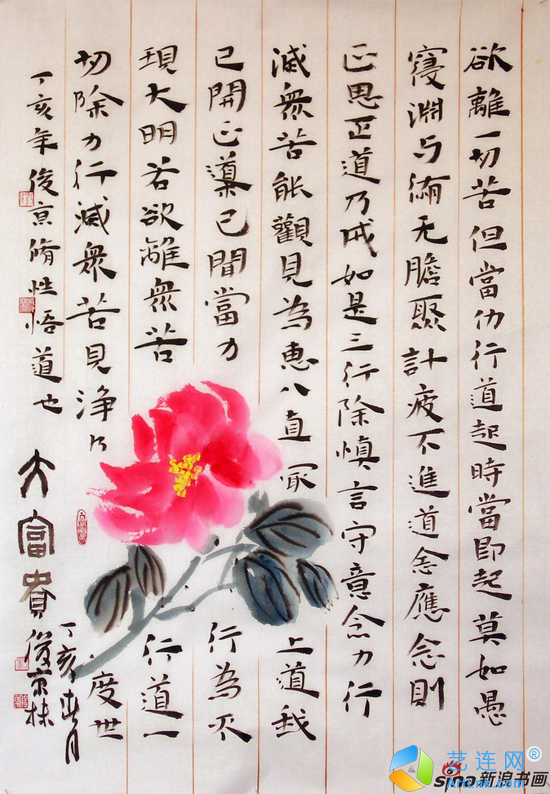 欲離一切苦但當仂行道起時當即起莫如愚
寑淵与緬无瞻聚計疲不進道念應念則
正思正道乃成如是三行除慎言守意念力行
滅衆苦能觀見為惠八直 上道我
已開正道已間當力 行為不
現大明若欲離衆苦 行道一
切除力行滅衆苦見浄 度世
丁亥年俊京脩性悟道也
大富貴
丁亥春月
俊京林
艺连网
sina新浪书画